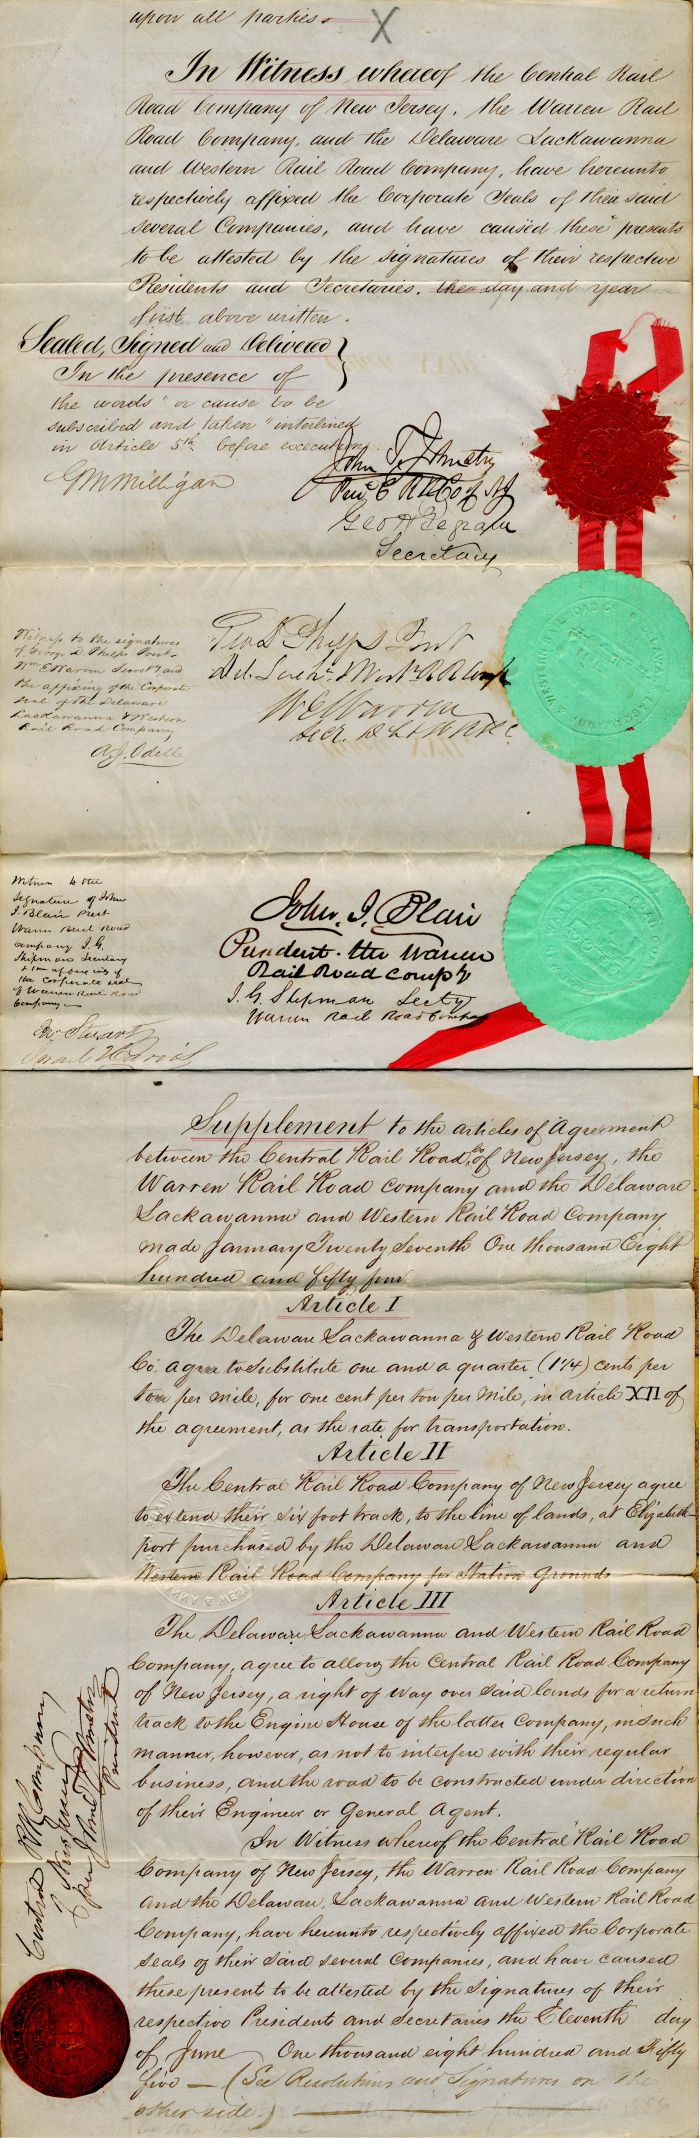 upon all parties.
X
In Witness whereof the Central Rail
Road Company of New Jersey, the Warren Rail
Road Company, and the Delaware Lackawanna
and Western Rail Road Company, have hereunto
respectively affixed the Corporate Seals of their said
several Companies, and have caused these presents
to be attested by the signatures of their respective
Presidents and Secretaries, the day and year
first above written.
Sealed, Signed and Delivered
In the presence of
the words "or cause to be
subscribed and taken" interlined
in Article 5th before execution
G M Milligan
John T. Johnston
Pres C R R Co of NJ
Geo H Pegram
Secretary
Witness to the signatures
of George D. Phelps Prest
Wm E Warren Secrety and
the affixing of the Corporate
seal of the Delaware
Lackawanna & Western
Rail Road Company
A. J. Odell
Geo D Phelps Prest
Del. Lack. & West. R R Comp
W E Warren
Secr. D L & W R R C.
Witness to the
signature of John
I. Blair Prest
Warren Rail Road
Company I. G.
Shipman Secretary
the Corporate seal
of Warren Rail Road
Company
John I. Blair
President the Warren
Rail Road Compy
J. G. Shipman Secty
Warren Rail Road Company
Supplement to the articles of Agreement
between the Central Rail Road Co of New Jersey, the
Warren Rail Road Company and the Delaware
Lackawanna and Western Rail Road Company
made January Twenty Seventh One thousand Eight
hundred and fifty four
Article I
The Delaware Lackawanna & Western Rail Road
Co. agree to substitute one and a quarter (1 1/4) cents per
ton per mile, for one cent per ton per mile, in article XII of
the agreement, as the rate for transportation.
Article II
The Central Rail Road Company of New Jersey agree
to extend their six foot track, to the line of lands, at Elizabeth-
port purchased by the Delaware Lackawanna and
Western Rail Road Company for Station Grounds
Article III
The Delaware Lackawanna and Western Rail Road
Company, agree to allow the Central Rail Road Company
of New Jersey, a right of way over said lands for a return
track to the Engine House of the latter Company, in such
manner, however, as not to interfere with their regular
business, and the road to be constructed under direction
of their Engineer or General Agent.
In Witness whereof the Central Rail Road
Company of New Jersey, the Warren Rail Road Company
and the Delaware, Lackawanna and Western Rail Road
Company, have hereunto respectively affixed the Corporate
seals of their said several Companies, and have caused
these present to be attested by the signatures of their
respective President and secretaries the Eleventh day
of June One thousand eight hundred and Fifty
five — (See Resolutions and Signatures on the
other side.)
Central RR Company
of New Jersey
John T Johnston
President